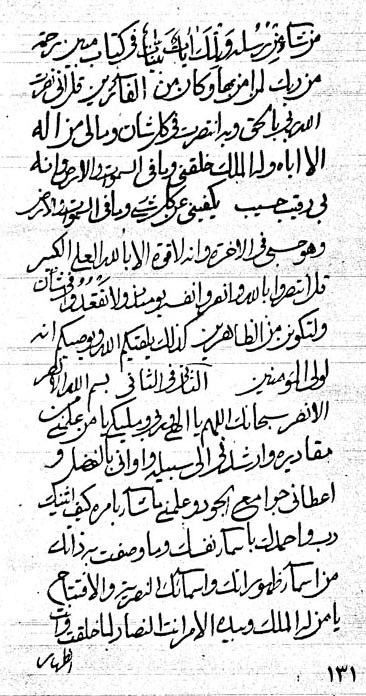 من شاء من رسله وتلك ايات بينات في كتاب مبين رحمة
من ربك لمن امن بها وكان من الشاكرين قل اني نصرت
الله ربي بالحق وبه انتصرت في كل شان ومالي من اله
الا اياه وله الملك خلقني وما في السموات والارض وانه
بي رقيب حسيب يكفيني عن كل شيء وما في السموات والارض
وهو حسبي في الاخرة وانه لا قوة الا بالله العلي الكبير
قل انتصروا بالله وانصروا نفسه يومئذ ولا تقعدوا في شان
ولتكونن من الظاهرين كذلك يلقيكم الله ويوصيكم انه
لولي المؤمنين الثاني في الثاني بسم الله الانصر
الانصر سبحانك اللهم يا الهي وربي ومليكي يا من علمني
مقاديره وارشدني الى سبيله واواني بالفضل و
اعطاني جوامع الجود وعلمني ما شاء بامره كيف اثنيك
رب واحمدك باسماء نفسك وما وصفت به ذاتك
من اسماء ظهوراتك واسمائك النصرية والافتتاح
يا من له الملك وبيده الامر انت النصار لما خلقت وانت
الظهار
١٣١